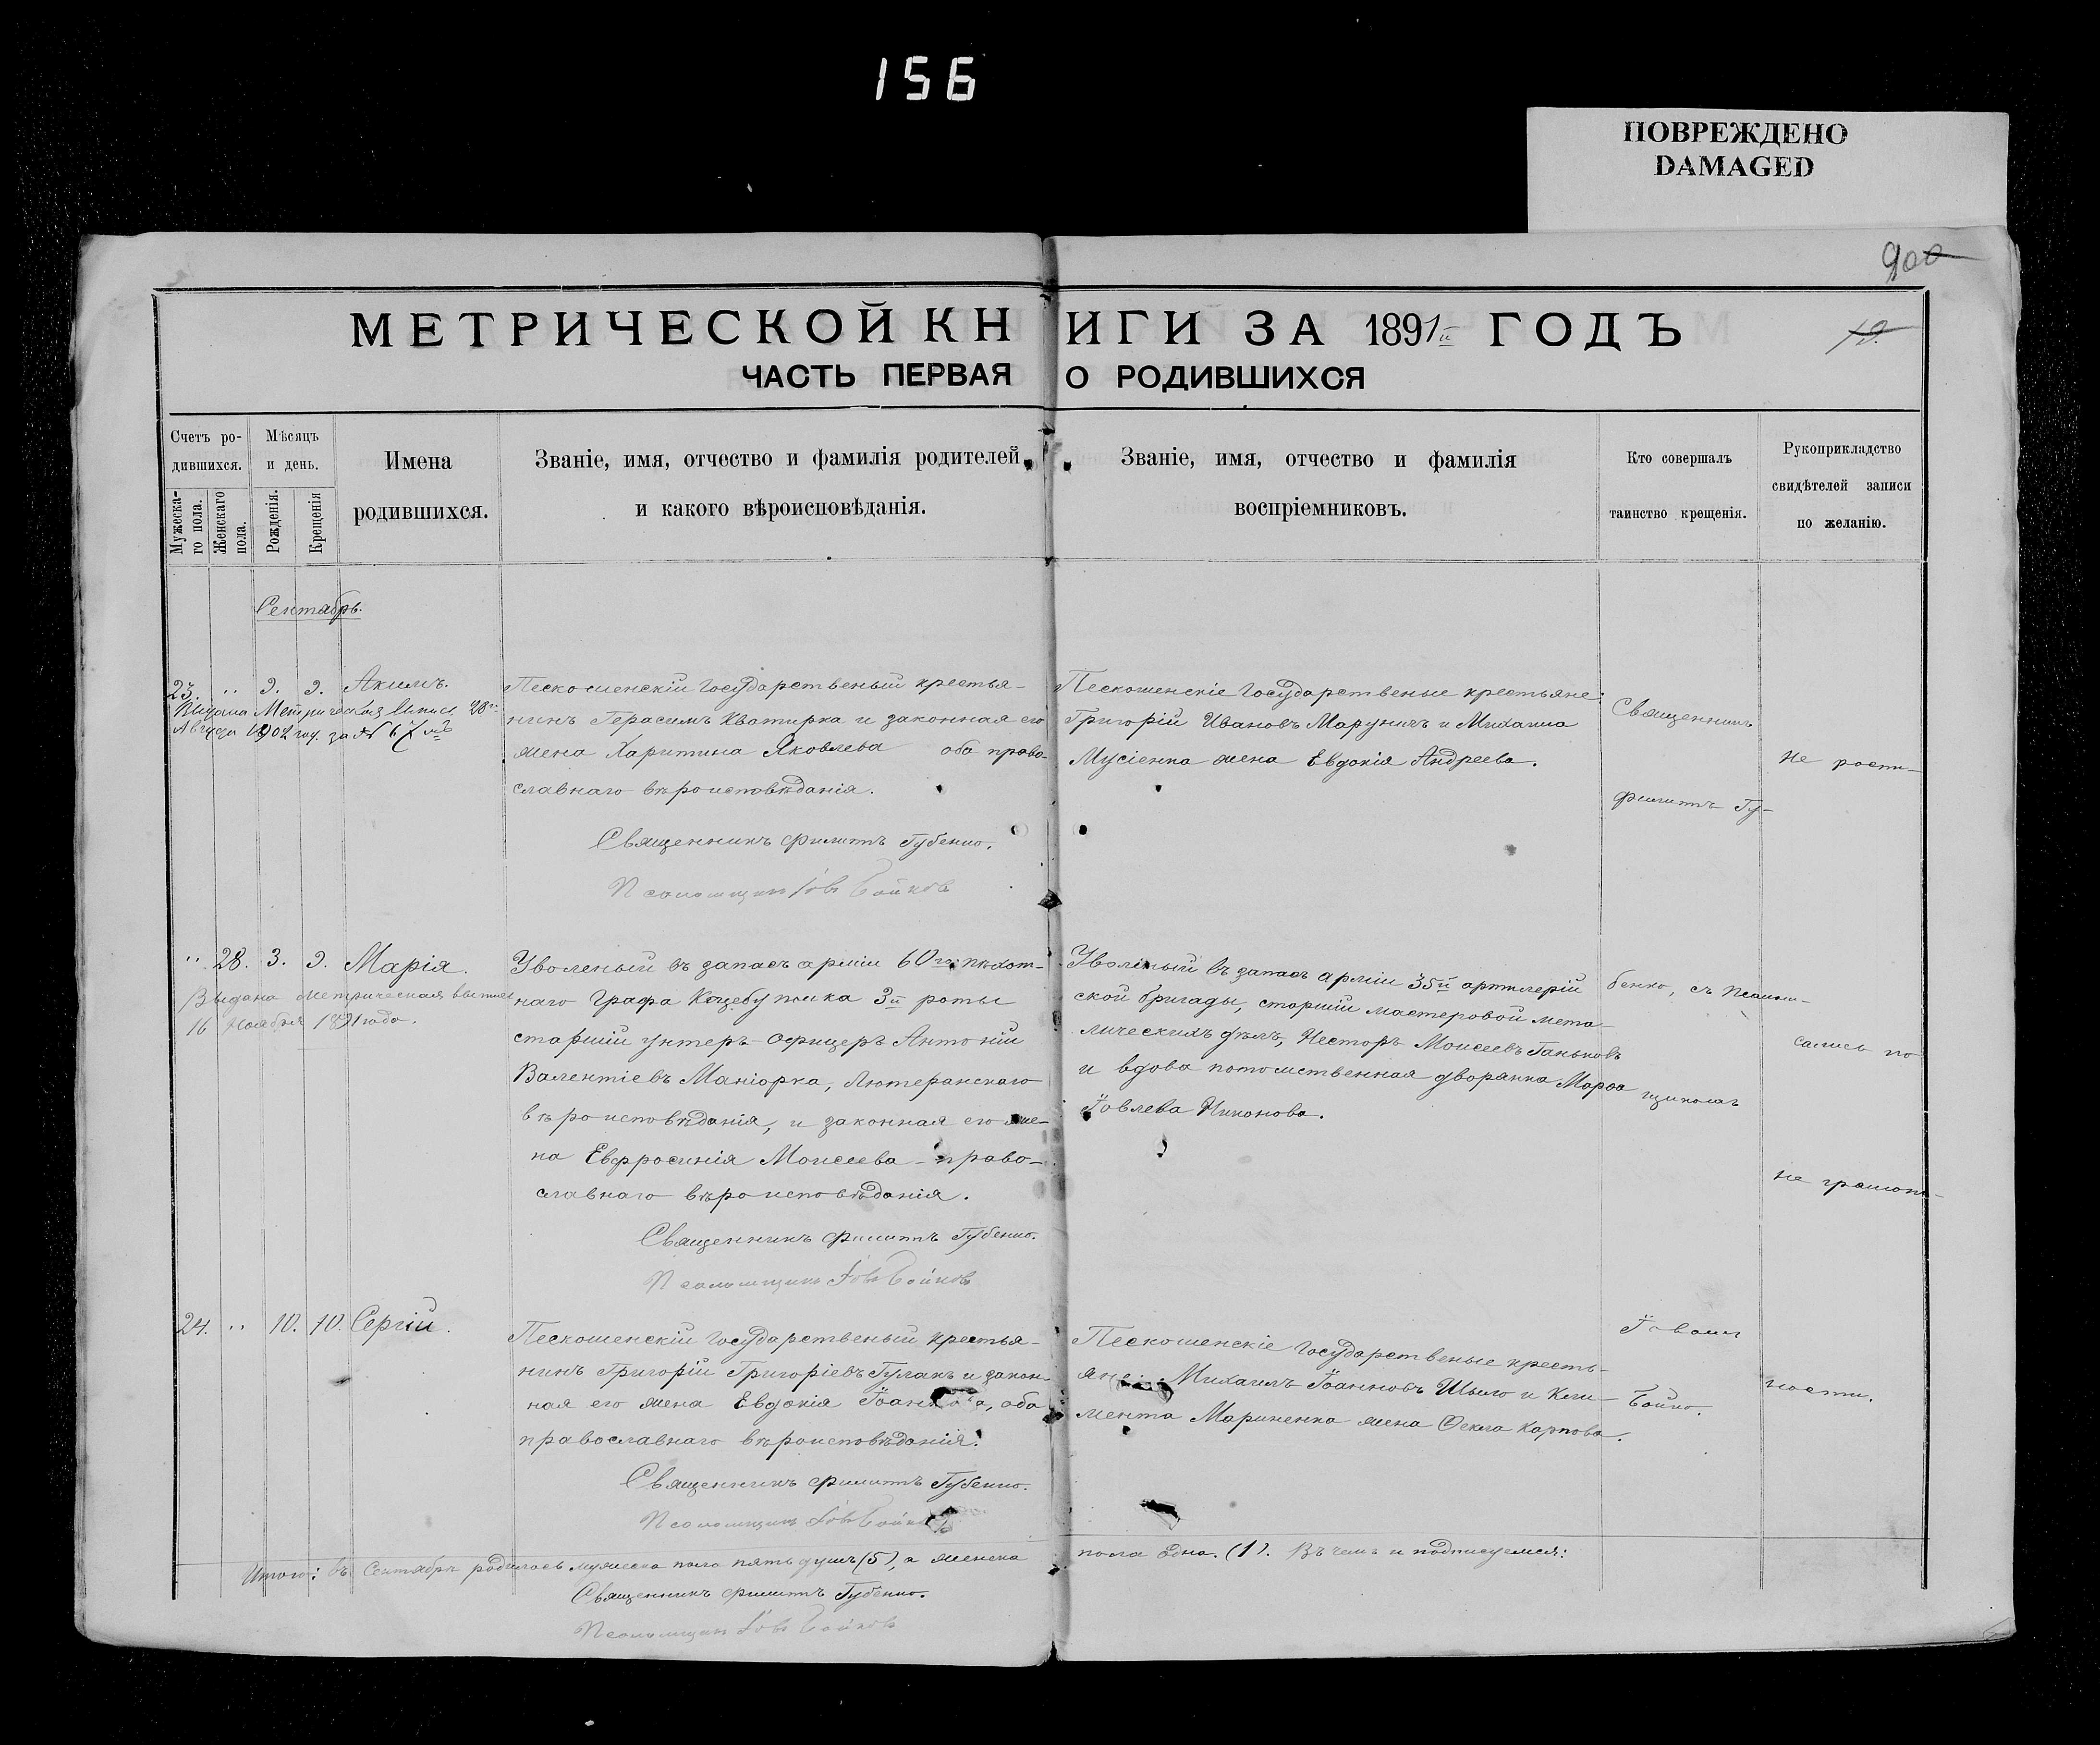 156
ПОВРЕЖДЕНО
DAMAGED
900
МЕТРИЧЕСКОЙ КНИГИ ЗА 1891й ГОДЪ
10.
ЧАСТЬ ПЕРВАЯ О РОДИВШИХСЯ
Счетъ ро-
дившихся.
Мужеска-
го пола.
Женскаго
пола.
Мѣсяцъ
и день.
Рожденія.
Крещенія
Имена
родившихся.
Званіе, имя, отчество и фамилія родителей
и какого вѣроисповѣданія.
Званіе, имя, отчество и фамилія
воспріемниковъ.
Кто совершалъ
таинство крещенія.
Рукоприкладство
свидѣтелей записи
по желанію.
Сентябрь.
23. " 9. 9. Акимъ.
Выдана Метрическая выпись 28го
Августа 1902 год. за № 67мъ
Пескошенскій государственый крестья-
нинъ Герасимъ Кватирка и законная его
жена Харитина Яковлева оба право-
славнаго вѣроисповѣданія.
Священникъ Филиппъ Губенко.
Псаломщикъ Іовъ Бойковъ
Пескошенскіе государственые крестьяне:
Григорій Ивановъ Маруничъ и Михаила
Мусіенка жена Евдокія Андреева.
" 28. 3. 9. Марія.
Выдана метрическая выпись
16 Ноября 1891 года.
Уволеный въ запасъ арміи 60го пѣхот-
наго Графа Коцебу полка 3й роты
старшій унтеръ-офицеръ Антоній
Валентіевъ Маніорка, лютеранскаго
вѣроисповѣданія, и законная его же-
на Евфросинія Моисеева - право-
славнаго вѣроисповѣданія.
Священникъ Филиппъ Губенко.
Псаломщикъ Іовъ Бойковъ
Уволеный въ запасъ арміи 35й артилерій
ской бригады, старшій мастеровой мета-
лическихъ дѣлъ, Несторъ Моисеевъ Ганьковъ
и вдова потомственная дворянка Марѳа
Іовлева Никонова.
24. " 10. 10. Сергій.
Пескошенскій государственый крестья-
нинъ Григорій Григоріевъ Гулакъ и закон-
ная его жена Евдокія Іоаннова, оба
православнаго вѣроисповѣданія.
Священникъ Филиппъ Губенко.
Псаломщикъ Іовъ Бойковъ
Пескошенскіе государственые кресть-
яне: Михаилъ Іоанновъ Шило и Кли-
мента Мариненка жена Ѳекла Карпова.
Священникъ
Филиппъ Гу-
бенко, съ псалом-
щикомъ
Іовомъ
Бойко.
Не распи-
сались по
не грамот-
ности.
Итого: въ Сентябрѣ родилось мужеска пола пять душъ (5), а женска
пола одна. (1). Въ чемъ и подписуемся:
Священникъ Филиппъ Губенко.
Псаломщикъ Іовъ Бойковъ